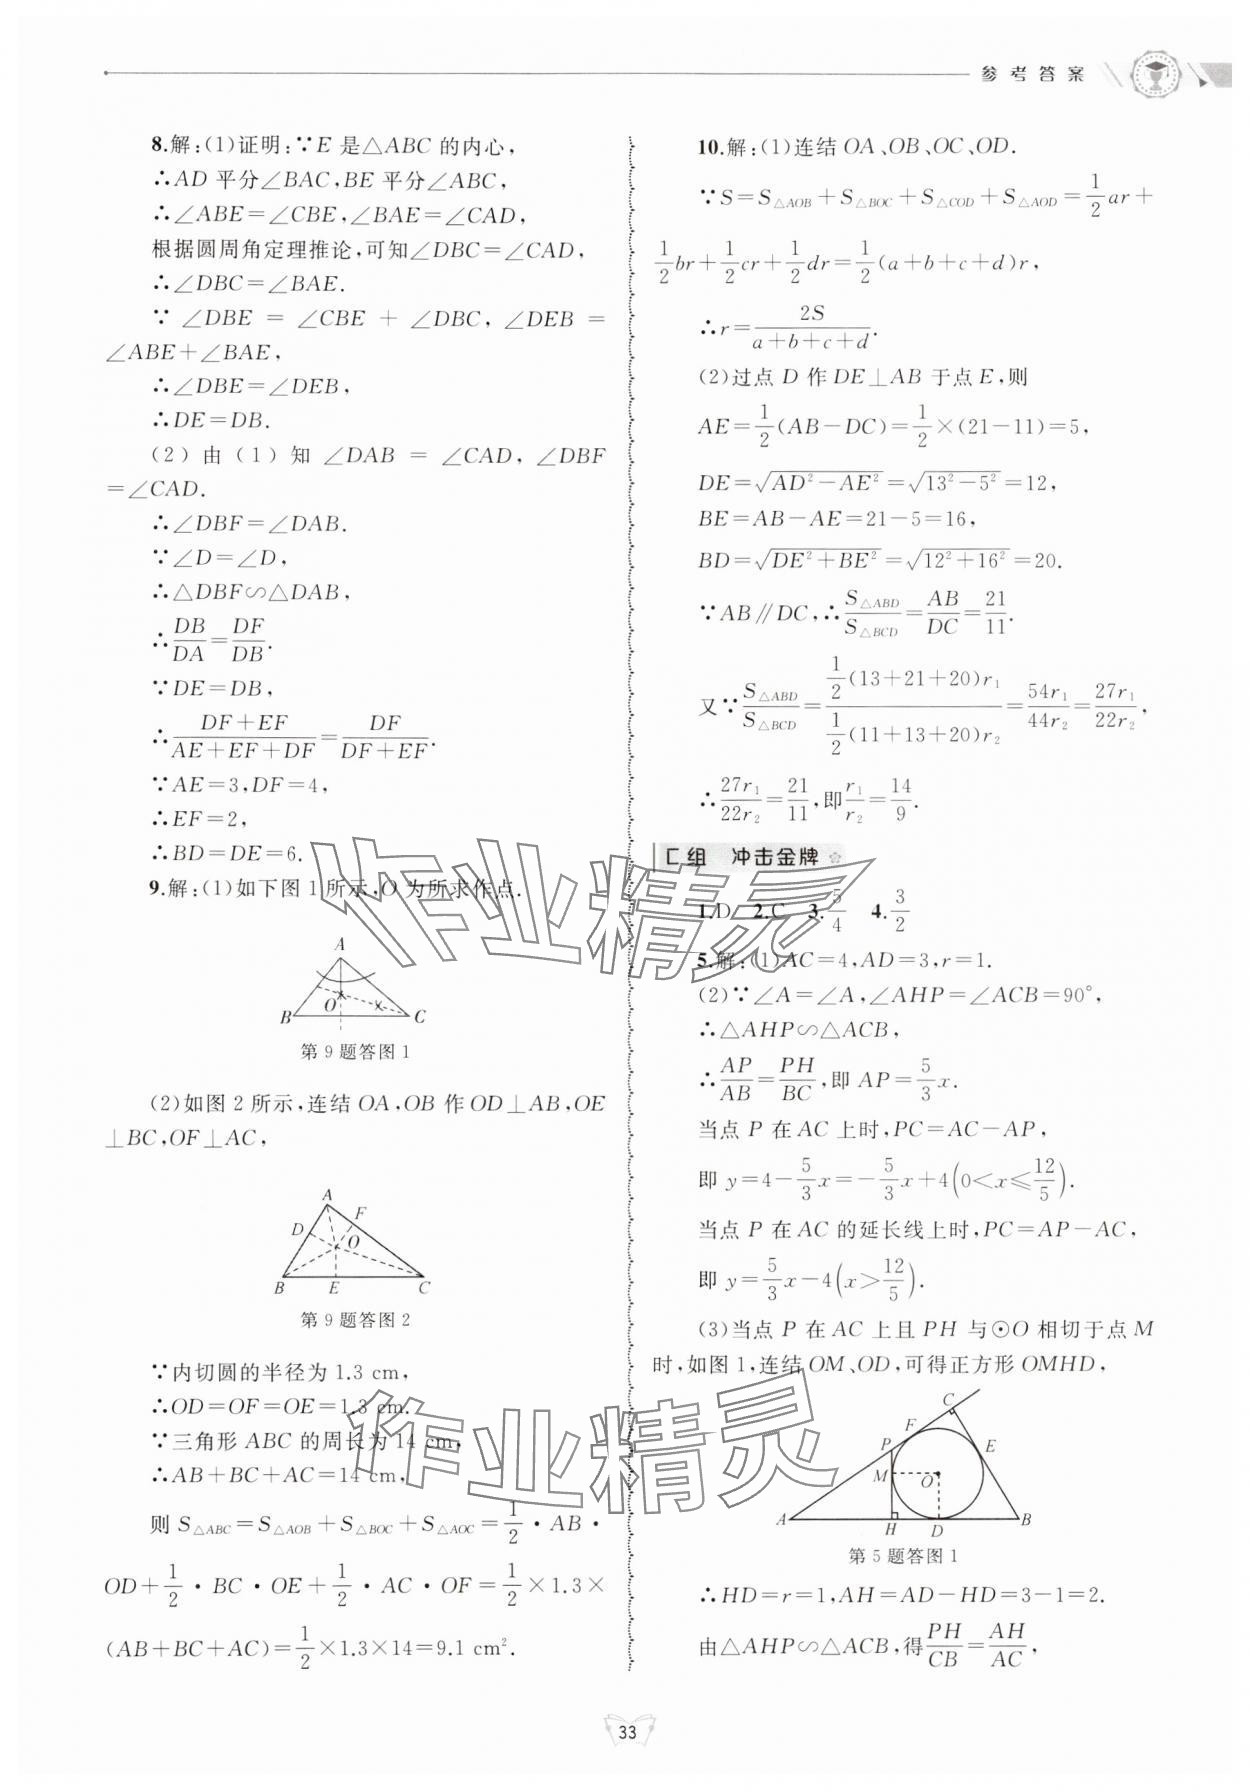 参考答案
8.解:(1)证明:∵E 是△ABC 的内心,
∴AD 平分∠BAC,BE 平分∠ABC,
∴∠ABE=∠CBE,∠BAE=∠CAD,
根据圆周角定理推论,可知∠DBC=∠CAD,
∴∠DBC=∠BAE.
∵ ∠DBE = ∠CBE + ∠DBC, ∠DEB =
∠ABE+∠BAE,
∴∠DBE=∠DEB,
∴DE=DB.
(2) 由 (1) 知 ∠DAB = ∠CAD, ∠DBF
=∠CAD.
∴∠DBF=∠DAB.
∵∠D=∠D,
∴△DBF∽△DAB,
∴DB/DA=DF/DB.
∵DE=DB,
∴(DF+EF)/(AE+EF+DF)=DF/(DF+EF).
∵AE=3,DF=4,
∴EF=2,
∴BD=DE=6.
9.解:(1)如下图 1 所示,O 为所求作点.
A
O
B C
第 9 题答图 1
(2)如图 2 所示,连结 OA,OB 作 OD⊥AB,OE
⊥BC,OF⊥AC,
A
F
D
O
B E C
第 9 题答图 2
∵内切圆的半径为 1.3 cm,
∴OD=OF=OE=1.3 cm.
∵三角形 ABC 的周长为 14 cm,
∴AB+BC+AC=14 cm,
则 S△ABC=S△AOB+S△BOC+S△AOC=1/2·AB·
OD+1/2·BC·OE+1/2·AC·OF=1/2×1.3×
(AB+BC+AC)=1/2×1.3×14=9.1 cm².
10.解:(1)连结 OA、OB、OC、OD.
∵S=S△AOB+S△BOC+S△COD+S△AOD=1/2ar+
1/2br+1/2cr+1/2dr=1/2(a+b+c+d)r,
∴r=2S/(a+b+c+d).
(2)过点 D 作 DE⊥AB 于点 E,则
AE=1/2(AB-DC)=1/2×(21-11)=5,
DE=√(AD²-AE²)=√(13²-5²)=12,
BE=AB-AE=21-5=16,
BD=√(DE²+BE²)=√(12²+16²)=20.
∵AB∥DC,∴S△ABD/S△BCD=AB/DC=21/11.
又∵S△ABD/S△BCD=(1/2(13+21+20)r₁)/(1/2(11+13+20)r₂)=54r₁/44r₂=27r₁/22r₂,
∴27r₁/22r₂=21/11,即r₁/r₂=14/9.
C组 冲击金牌
1.D 2.C 3.5/4 4.3/2
5.解:(1)AC=4,AD=3,r=1.
(2)∵∠A=∠A,∠AHP=∠ACB=90°,
∴△AHP∽△ACB,
∴AP/AB=PH/BC,即 AP=5/3x.
当点 P 在 AC 上时,PC=AC-AP,
即 y=4-5/3x=-5/3x+4(0<x≤12/5).
当点 P 在 AC 的延长线上时,PC=AP-AC,
即 y=5/3x-4(x>12/5).
(3)当点 P 在 AC 上且 PH 与⊙O 相切于点 M
时,如图 1,连结 OM、OD,可得正方形 OMHD,
C
F
P E
M
O
A H D B
第 5 题答图 1
∴HD=r=1,AH=AD-HD=3-1=2.
由△AHP∽△ACB,得PH/CB=AH/AC,
作业精灵
作业精灵
33